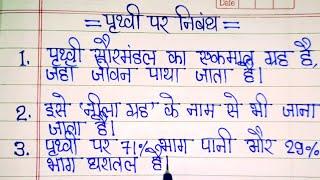 = पृथ्वी पर निबंध =
1. पृथ्वी सौरमंडल का एकमात्र ग्रह है,
जहां जीवन पाया जाता है।
2. इसे 'नीला ग्रह' के नाम से भी जाना
जाता है।
3. पृथ्वी पर 71% भाग पानी और 29%
भाग धरातल है।